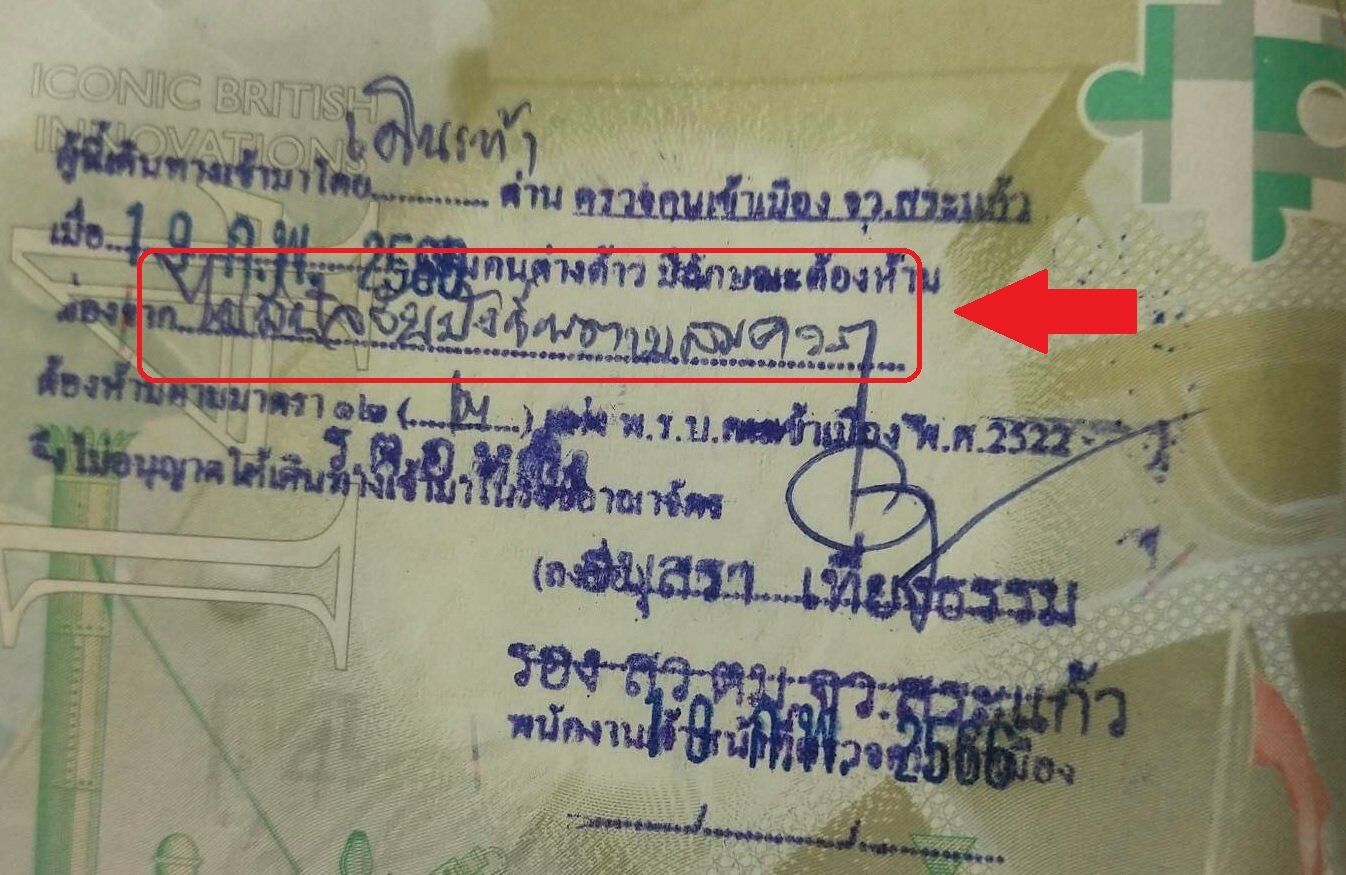 ICONIC BRITISH
INNOVATIONS
เดินเท้า
ผู้นี้เดินทางเข้ามาโดย............ ด่าน ตรวจคนเข้าเมือง จว.สระแก้ว
เมื่อ..18 ก.พ. 2566 คนต่างด้าว มีลักษณะต้องห้าม
เนื่องจาก...ไม่มีปัจจัยยังชีพตามสมควร
ต้องห้ามตามมาตรา ๑๒ ( ) แห่ง พ.ร.บ.คนเข้าเมือง พ.ศ.2522
จึงไม่อนุญาตให้เดินทางเข้ามาในราชอาณาจักร
ร.ต.อ.หญิง
(ลงชื่อ) อนุสรา เที่ยงธรรม
รอง สว.ตม.จว.สระแก้ว
พนักงานเจ้าหน้าที่ตรวจคนเข้าเมือง
18 ก.พ. 2566